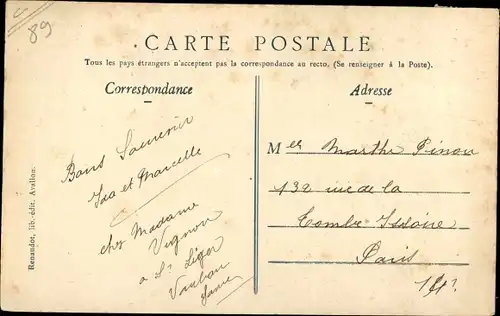 89
CARTE POSTALE
Tous les pays étrangers n'acceptent pas la correspondance au recto. (Se renseigner à la Poste).
Correspondance
Adresse
Renaudot, lib. édit. Avallon.
Bons Souvenir
Ida et Marcelle
chez Madame
Vignon
a St Léger
Vauban
Yonne
Mlle Marthe Pinon
132 rue de la
Tombe-Issoire
Paris
14e